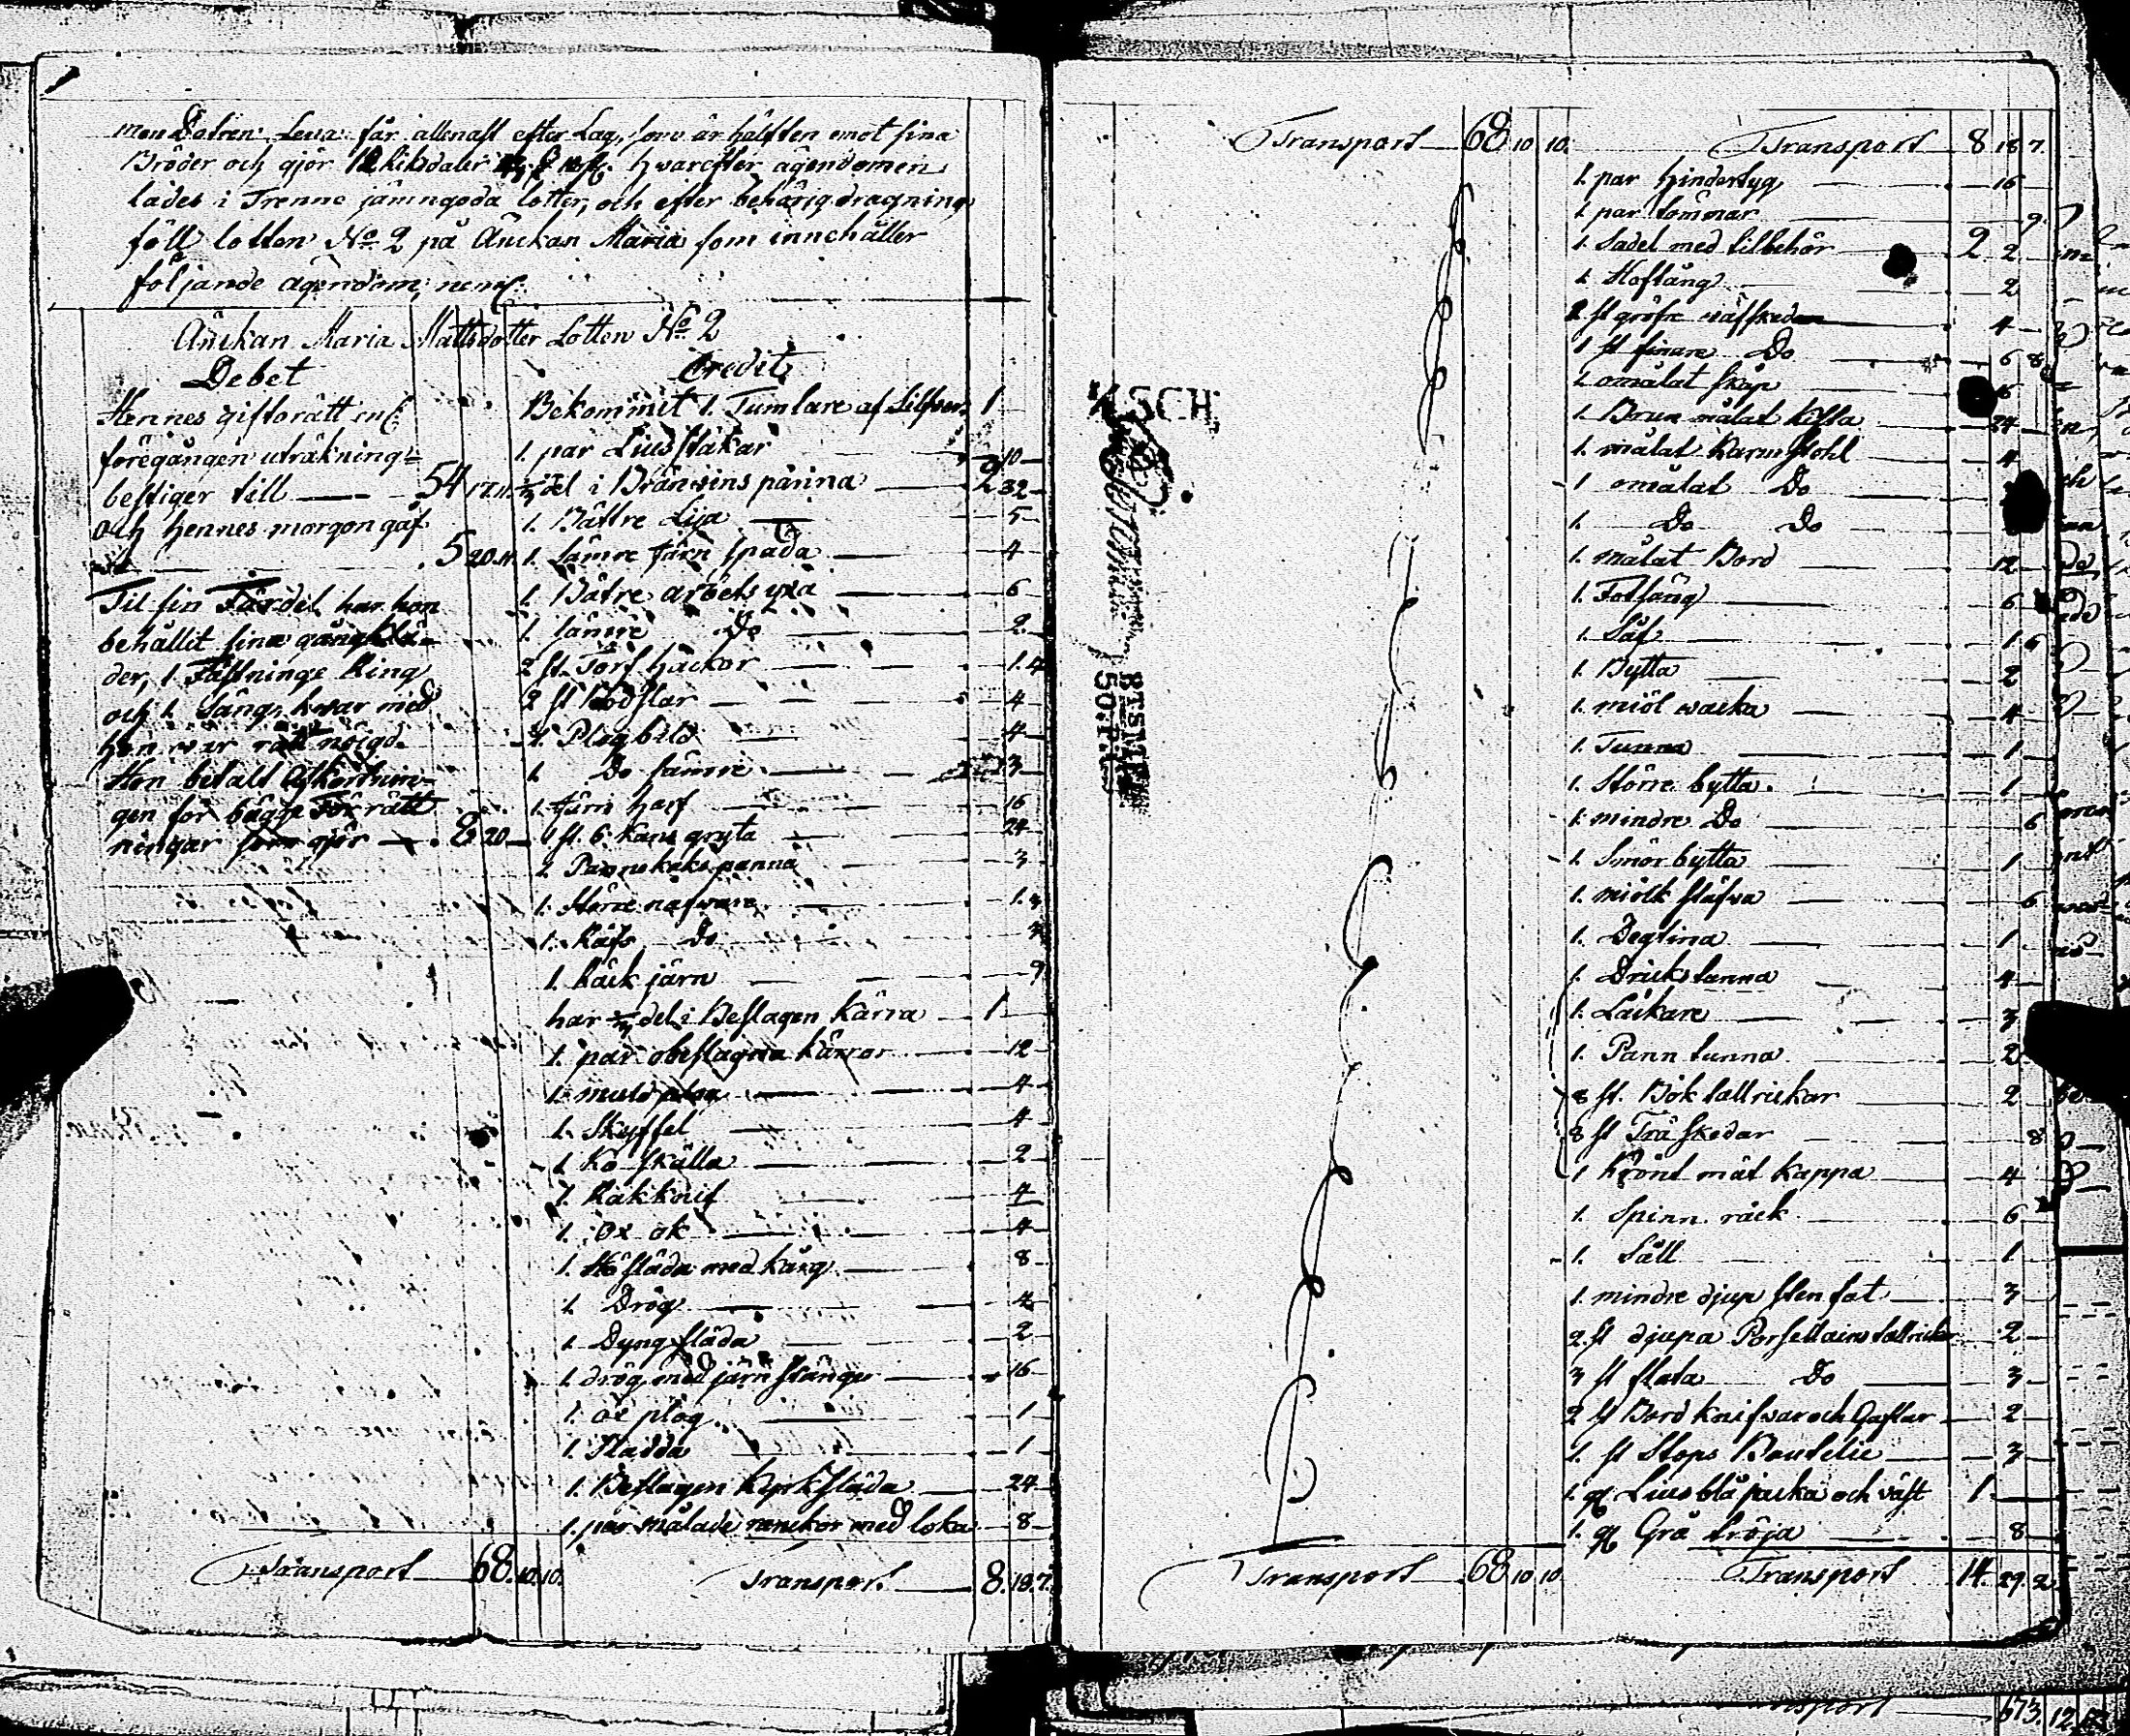 men Dotren Lena får allenast efter Lag, som är hälften emot sina
Bröder och gjör 12 Riksdaler hvarefter ägendomen
lades i Trenne jämngoda lotter, och efter behörig dragning
föll lotten No. 2 på Änckan Maria som innehåller
följande ägendom; neml.
Änckan Maria Mattsdotter Lotten No. 2
Debet
Hennes giftorätt enl.
föregången uträkning
bestiger till — 54 17 11
och hennes morgongåf
5 20 11
Til sin Fördel har hon
behållit sina gångklä-
der, 1 Fästninge Ring
och 1 Säng, hvar med
hon war rätt nögd.
Hon betalt Afkortnin-
gen för bägge För rätt
ningar som gjör — 8 20 —
Transport 68. 10. 10.
Credit
Bekommit 1. Tumlare af Silfver 1
1. par Lius stakar 10
1/3 del i Bränwins pänna 2 32
1. Bättre Lija 5
1. sämre Järn spada 4
1. Bätre arbets yxa 6
1. sämre Do 2
2 st. Torf hackor 1.
2 st 4
1. Plogbild 4
1 Do sämre 3
1. Järn harf 16
1 st. 6 kans gryta 24
1. Pannskaks panna 3
1. Större nafware 1.
1. Do
1. Räck järn 9
har 1/3 del i Beslagen Kärra 1
1. par obeslagna kärror 12
1. muld plog 4
1. Skyffel 4
1 Ko skälla 2
1. Rakknif 4
1. ox ok 4
1. Hö släda med karg 8
1. Drög 4
1. Dyng släda 2
1. drög med järn stänger 16
1. ox plog 1
1. Sladda 1
1. Beslagen Kyrksläda 24
1. par målade ranckor med loka 8
Transport 8. 18. 7.
Transport 68 10 10.
Transport 68 10 10.
Transport 8 18 7.
1. par hindertyg 16
1 par tömmar 9
1. Sadel med tilbehör 2 2
1. Hoftång 2
2 st gröfre wäfskedar 4
1 st finare Do 6 8
1 omålat skåp 16
1. Brun målat kista 24
1. målat Karmstohl 4
1 omålat Do
1. Do Do
1. målat Bord 12
1. Fotsäng 6
1. Såf 1 6
1. Bytta 2
1. miöl wacka 4
1. Tunna 1
1. Större bytta 1
1. mindre Do 6
1. Smör bytta 1
1. miölk stäfwa 6
1. Deglina 1
1. Drickstunna 4
1. Läckare 3
1. Pann tunna 2
8 st. Bök tallrickar 2
8 st Trä skedar 8
1 Krönt måt kappa 4
1. Spinn råck 6
1. Såll 1
1. mindre djup sten fat 3
2. st djupa Porsellains tallrickar 2
3 st flata Do 3
2 st Bord Knifwar och Gaflar 2
1. st Stops Boutelie 3
1. gl Lius blå jacka och väst 1
1. gl Grå tröja 8
Transport 14. 29. 2
KSCH
50:P.I:
nsport 673. 12.